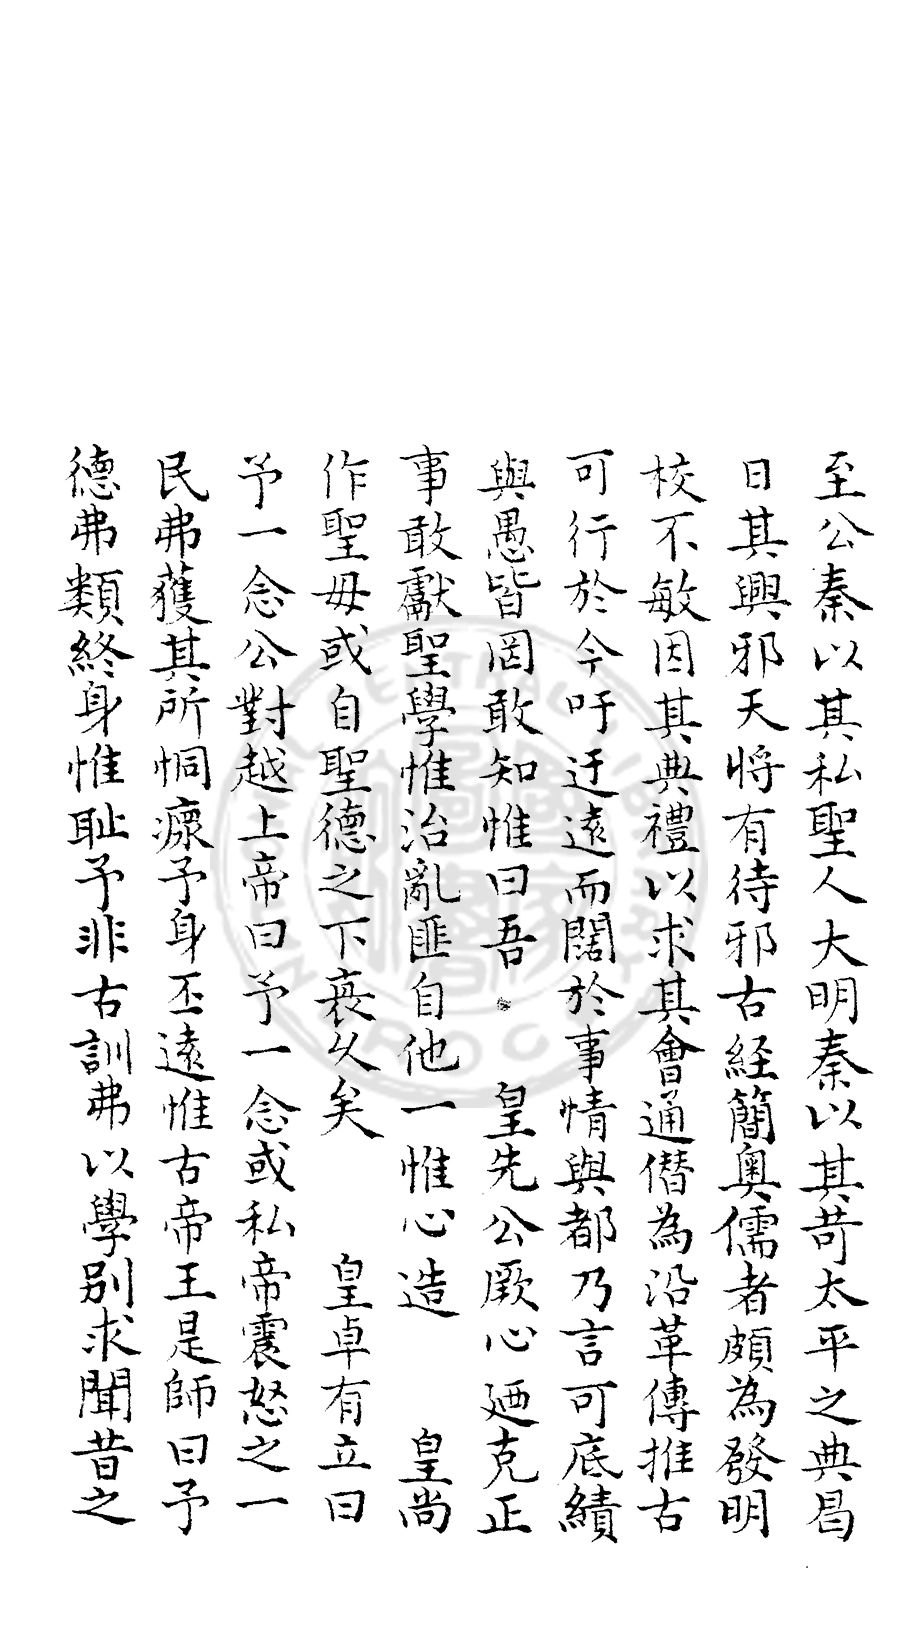 至公秦以其私聖人大明秦以其苛太平之典昌
日其興邪天將有待邪古経簡奧儒者頗為發明
校不敏因其典禮以求其會通僭為沿革傳推古
可行於今吁迂遠而闊於事情與都乃言可底績
與愚皆罔敢知惟曰吾 皇先公厥心廼克正
事敢獻聖學惟治亂匪自他一惟心造 皇尚
作聖毋或自聖德之下衰久矣 皇卓有立曰
予一念公對越上帝曰予一念或私帝震怒之一
民弗獲其所恫瘝予身丕遠惟古帝王是師曰予
德弗類終身惟耻予非古訓弗以學別求聞昔之